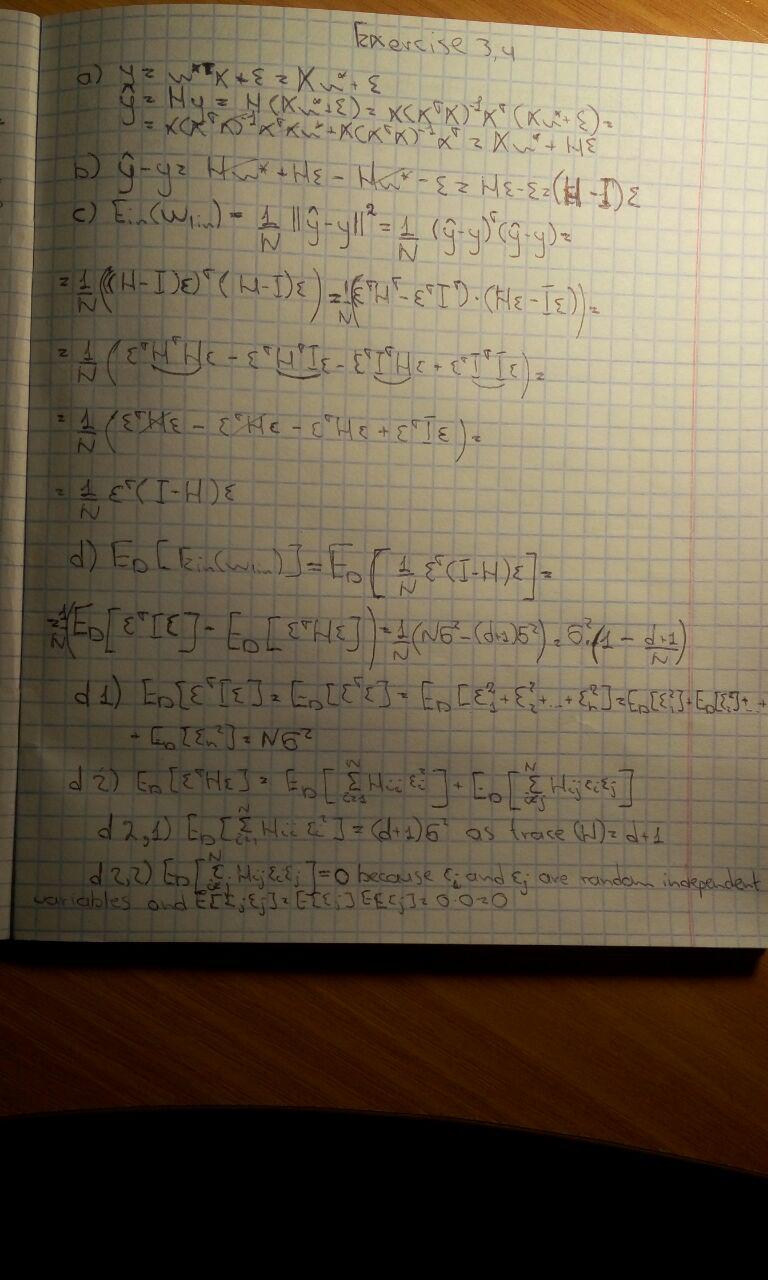 Exercise 3,4
a) y = w*ᵀx + ε = Xw* + ε
ŷ = Hy = H(Xw*+ε) = X(XᵀX)⁻¹Xᵀ(Xw*+ε) =
= X(XᵀX)⁻¹XᵀXw* + X(XᵀX)⁻¹Xᵀε = Xw* + Hε
b) ŷ-y = Hw* + Hε - Hw* - ε = Hε-ε = (H-I)ε
c) Ein(wlin) = 1/N ||ŷ-y||² = 1/N (ŷ-y)ᵀ(ŷ-y) =
= 1/N (((H-I)ε)ᵀ(H-I)ε) = 1/N ((εᵀHᵀ-εᵀIᵀ)·(Hε-Iε)) =
= 1/N (εᵀHᵀHε - εᵀHᵀIε - εᵀIᵀHε + εᵀIᵀIε) =
= 1/N (εᵀHε - εᵀHε - εᵀHε + εᵀIε) =
= 1/N εᵀ(I-H)ε
d) E_D[Ein(wlin)] = E_D[1/N εᵀ(I-H)ε] =
= 1/N (E_D[εᵀIε] - E_D[εᵀHε]) = 1/N (Nσ² - (d+1)σ²) = σ²·(1 - (d+1)/N)
d1) E_D[εᵀIε] = E_D[εᵀε] = E_D[ε₁²+ε₂²+...+εₙ²] = E_D[ε₁²]+E_D[ε₂²]+...+
+ E_D[εₙ²] = Nσ²
d2) E_D[εᵀHε] = E_D[∑ᵢ₌₁ᴺ Hᵢᵢεᵢ²] + E_D[∑ᵢ≠ⱼᴺ Hᵢⱼεᵢεⱼ]
d2,1) E_D[∑ᵢ₌₁ᴺ Hᵢᵢεᵢ²] = (d+1)σ² as trace (H) = d+1
d2,2) E_D[∑ᵢ≠ⱼᴺ Hᵢⱼεᵢεⱼ] = 0 because εᵢ and εⱼ are random independent
variables and E[εᵢεⱼ] = E[εᵢ]E[εⱼ] = 0·0=0